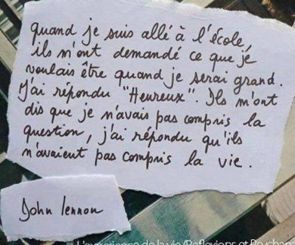 quand je suis allé à l'école,
ils m'ont demandé ce que je
voulais être quand je serai grand.
j'ai répondu "Heureux". Ils m'ont
dis que je n'avais pas compris la
question, j'ai répondu qu'ils
n'avaient pas compris la vie.
John lennon
L'expérience de la vie (Réflexions et Psychan